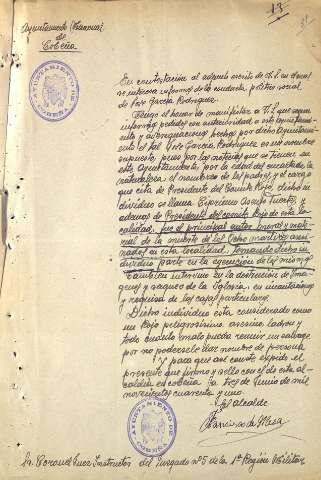 13
Ayuntamiento (Francos)
de
Cobeña
AYUNTAMIENTO DE
En contestación al adjunto escrito de V.S. en el cual
se interesa informe de la conducta político social
de José García Rodríguez
Tengo el honor de manifestar a V.S. que según
informes pedidos con anterioridad a este
y averiguaciones hechas por dicho Ayuntamiento
el tal José García Rodríguez es un nombre
supuesto, pues por las noticias que se tienen en
este Ayuntamiento, por la edad del encartado, la
naturaleza, el nombre de los padres, y el cargo
que cita de Presidente del Comité Rojo, dicho in
dividuo se llama Cipriano Fuertes, y
además de Presidente del comité Rojo de esta lo
calidad, fue el principal autor moral y mate
rial de la muerte de los ocho martires asesi
nados en esta localidad, tomando dicho in
dividuo parte en la ejecución de los mismos
También intervino en la destrucción de Image
nes y saqueo de la Iglesia, en incautaciones
y requisa de las cajas particulares.
Dicho individuo está considerado como
un Rojo peligrosísimo, asesino, ladrón y
todo cuanto malo pueda reunir un salvaje
por no podersele dar nombre de persona
Y para que así conste expido el
presente que firmo y sello con el de esta al
caldía en Cobeña a tres de Junio de mil
novecientos cuarenta y uno.
El alcalde
Francisco de Mesa
AYUNTAMIENTO DE
Sr. Coronel Juez Instructor del Juzgado nº 5 de la 1ª Región Militar